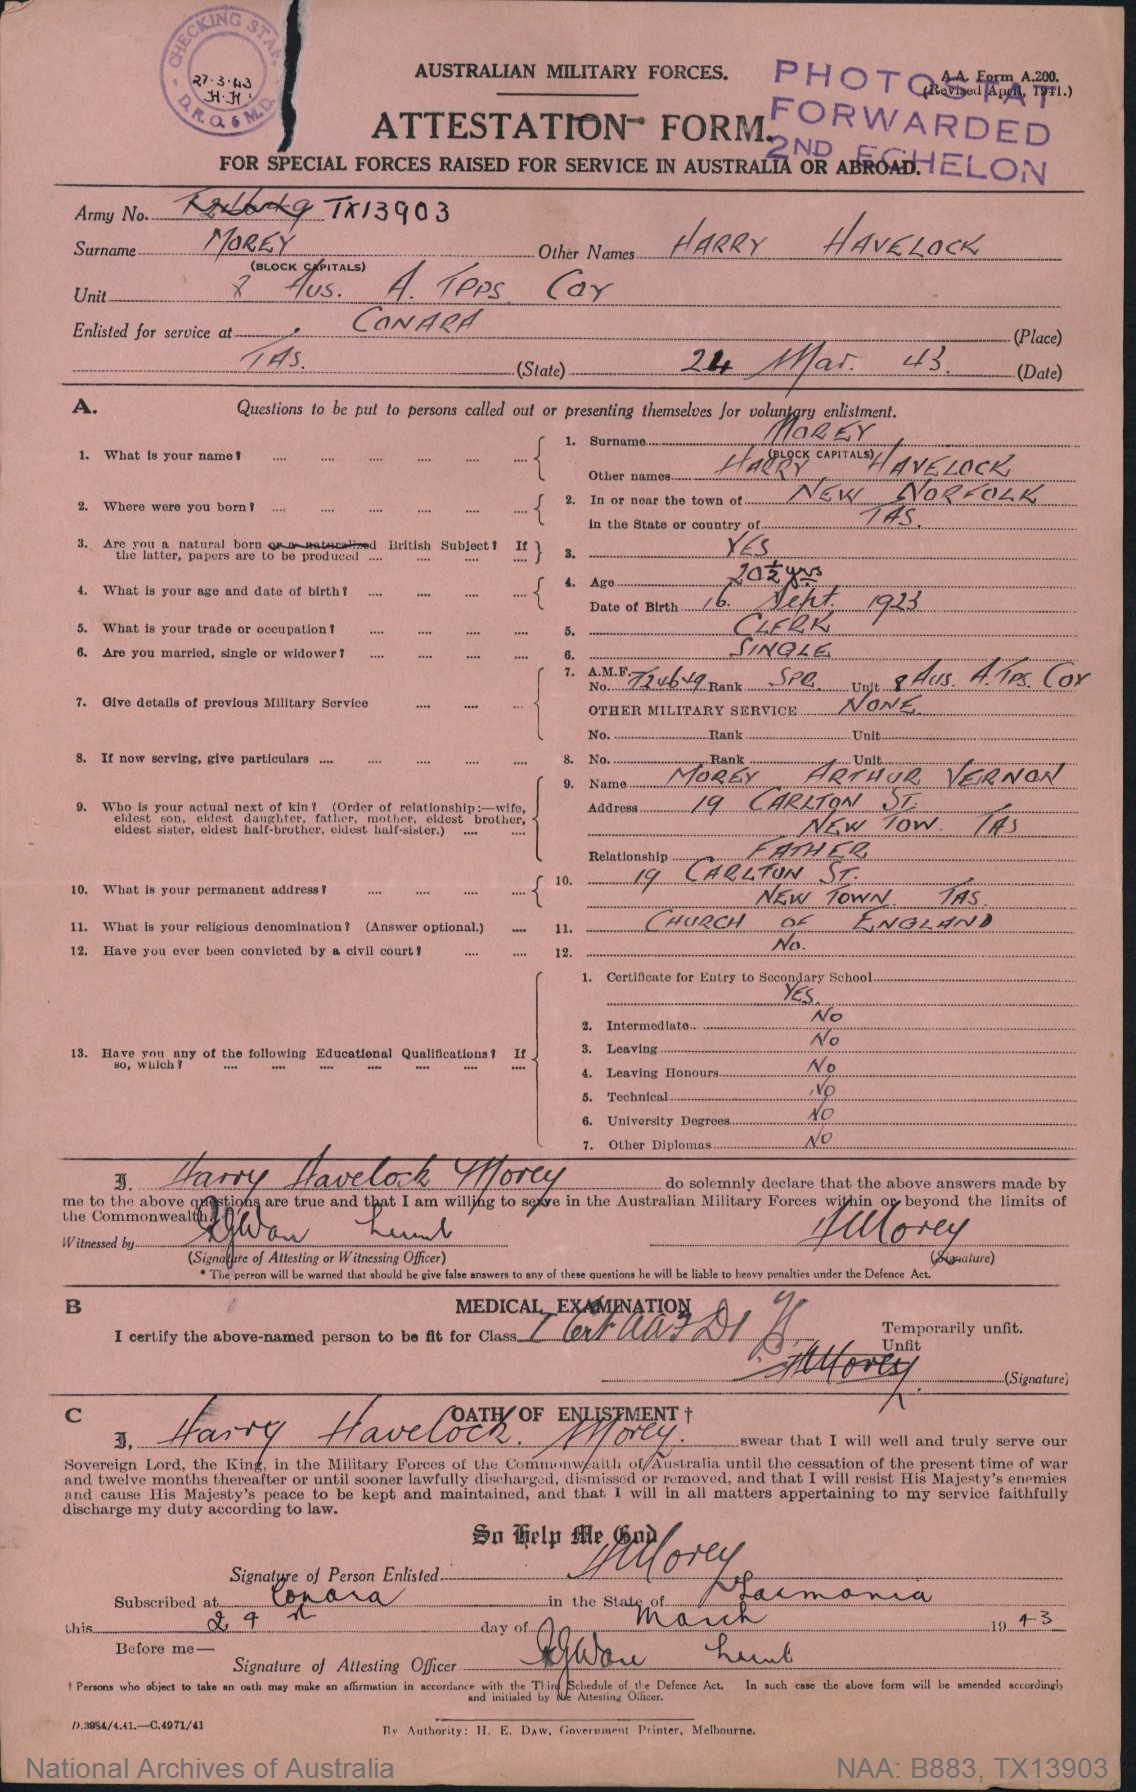 CHECKING STAFF
27·3·43
H.H.
D.R.O. 6 M.D.
AUSTRALIAN MILITARY FORCES.
A.A. Form A.200.
(Revised April, 1941.)
PHOTOSTAT
FORWARDED
2ND ECHELON
ATTESTATION FORM.
FOR SPECIAL FORCES RAISED FOR SERVICE IN AUSTRALIA OR ABROAD.
Army No. T24649 TX13903
Surname MOREY Other Names HARRY HAVELOCK
(BLOCK CAPITALS)
Unit 8 Aus. A. Tpps Coy
Enlisted for service at CONARA (Place)
TAS. (State) 24 Mar. 43. (Date)
A. Questions to be put to persons called out or presenting themselves for voluntary enlistment.
1. What is your name? 1. Surname MOREY
(BLOCK CAPITALS)
Other names HARRY HAVELOCK
2. Where were you born? 2. In or near the town of NEW NORFOLK
in the State or country of TAS.
3. Are you a natural born or a naturalized British Subject? If
the latter, papers are to be produced 3. YES
4. What is your age and date of birth? 4. Age 20½ yrs
Date of Birth 16. Sept. 1923
5. What is your trade or occupation? 5. CLERK
6. Are you married, single or widower? 6. SINGLE
7. Give details of previous Military Service 7. A.M.F. No. T24649 Rank SPR. Unit 8 Aus. A. Tps. Coy
OTHER MILITARY SERVICE NONE
No. Rank Unit
8. If now serving, give particulars 8. No. Rank Unit
9. Who is your actual next of kin? (Order of relationship:—wife,
eldest son, eldest daughter, father, mother, eldest brother,
eldest sister, eldest half-brother, eldest half-sister.)
9. Name MOREY ARTHUR VERNON
Address 19 CARLTON ST.
NEW TOW. TAS
Relationship FATHER
10. What is your permanent address? 10. 19 CARLTON ST.
NEW TOWN. TAS.
11. What is your religious denomination? (Answer optional.) 11. CHURCH OF ENGLAND
12. Have you ever been convicted by a civil court? 12. No.
13. Have you any of the following Educational Qualifications? If
so, which?
1. Certificate for Entry to Secondary School
YES.
2. Intermediate No
3. Leaving No
4. Leaving Honours No
5. Technical No
6. University Degrees No
7. Other Diplomas No
I, Harry Havelock Morey do solemnly declare that the above answers made by
me to the above questions are true and that I am willing to serve in the Australian Military Forces within or beyond the limits of
the Commonwealth.
Witnessed by Lieut HMorey
(Signature of Attesting or Witnessing Officer) (Signature)
* The person will be warned that should he give false answers to any of these questions he will be liable to heavy penalties under the Defence Act.
B MEDICAL EXAMINATION
I certify the above-named person to be fit for Class
Temporarily unfit.
Unfit
HMorey (Signature)
C OATH OF ENLISTMENT †
I, Harry Havelock. Morey. swear that I will well and truly serve our
Sovereign Lord, the King, in the Military Forces of the Commonwealth of Australia until the cessation of the present time of war
and twelve months thereafter or until sooner lawfully discharged, dismissed or removed, and that I will resist His Majesty's enemies
and cause His Majesty's peace to be kept and maintained, and that I will in all matters appertaining to my service faithfully
discharge my duty according to law.
So Help Me God
Signature of Person Enlisted HMorey
Subscribed at Conara in the State of Tasmania
this 24 day of March 1943
Before me—
Signature of Attesting Officer Lieut
† Persons who object to take an oath may make an affirmation in accordance with the Third Schedule of the Defence Act. In such case the above form will be amended accordingly
and initialed by the Attesting Officer.
D.3984/4.41.—C.4971/41
By Authority: H. E. Daw, Government Printer, Melbourne.
National Archives of Australia
NAA: B883, TX13903